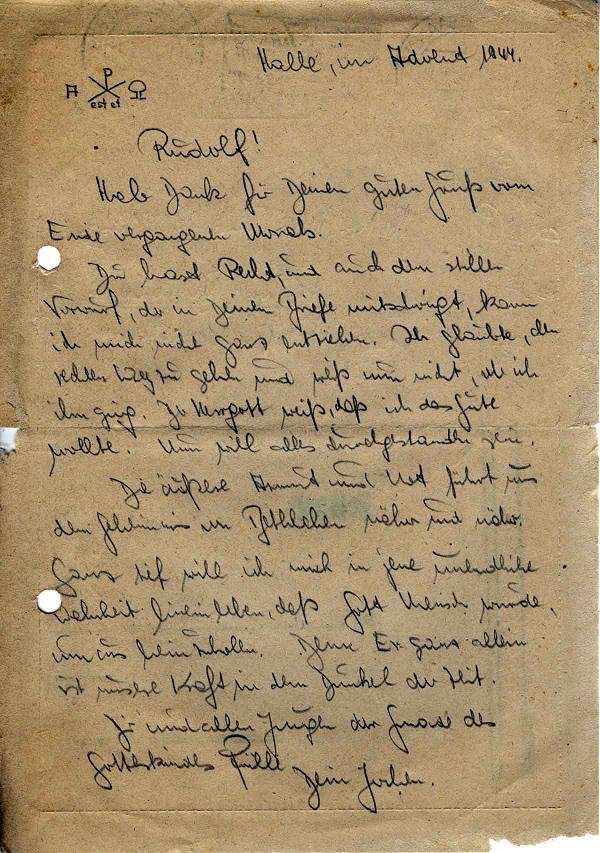 Halle, im Advent 1944.
A P est et Ω
Rudolf!
Hab Dank für Deinen guten Gruß vom
Ende vergangenen Monats.
Du hast Recht, und auch dem stillen
Vorwurf, der in Deinem Briefe mitschwingt, kann
ich mich nicht ganz entziehen. Ich glaubte, den
rechten Weg zu gehen und weiß nun nicht, ob ich
ihn ging. Der Herrgott weiß, daß ich das Gute
wollte. Nun will alles durchgestanden sein.
Die äußere Armut und Not führt uns
dem Geheimnis von Bethlehem näher und näher.
Ganz tief will ich mich in jene unendliche
Wahrheit hineinleben, daß Gott Mensch wurde,
um uns heimzuholen. Denn Er ganz allein
ist unsere Kraft in dem Dunkel der Zeit.
Dir und allen Jungen der Gnade des
Gotteskindes Fülle
Dein Jochen.